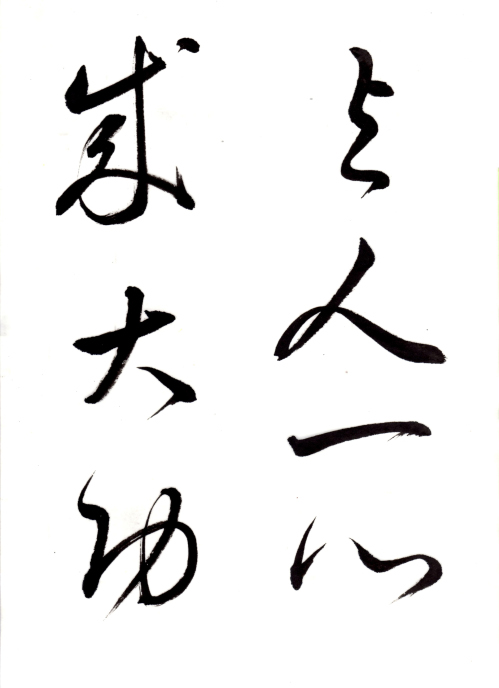 与人一心
成大功